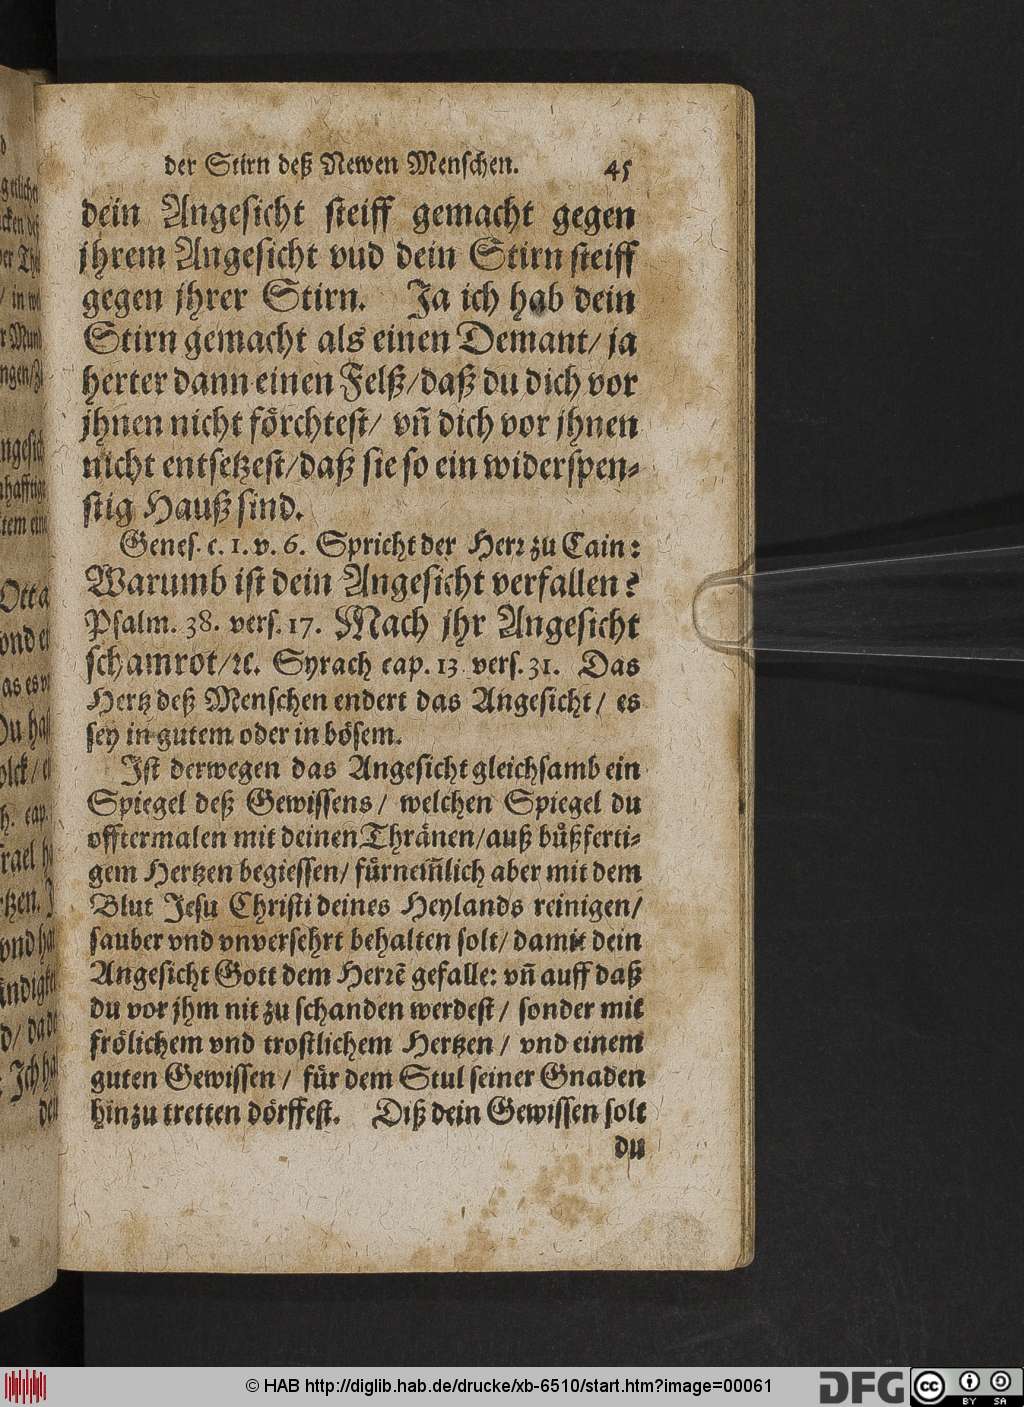 der Stirn deß Newen Menschen. 45
dein Angesicht steiff gemacht gegen
jhrem Angesicht vud dein Stirn steiff
gegen jhrer Stirn. Ja ich hab dein
Stirn gemacht als einen Demant/ ja
herter dann einen Felß/daß du dich vor
jhnen nicht förchtest/ vñ dich vor jhnen
nicht entsetzest/daß sie so ein widerspen-
stig Hauß sind.
Genes. c. 1. v. 6. Spricht der Herr zu Cain:
Warumb ist dein Angesicht verfallen?
Psalm. 38. vers. 17. Mach jhr Angesicht
schamrot/ꝛc. Syrach cap. 13 vers. 31. Das
Hertz deß Menschen endert das Angesicht/ es
sey in gutem oder in bösem.
Ist derwegen das Angesicht gleichsamb ein
Spiegel deß Gewissens/ welchen Spiegel du
offtermalen mit deinen Thränen/auß bůßferti-
gem Hertzen begiessen/ fürnem̃lich aber mit dem
Blut Jesu Christi deines Heylands reinigen/
sauber vnd vnversehrt behalten solt/ damit dein
Angesicht Gott dem Herrẽ gefalle: vñ auff daß
du vor jhm nit zu schanden werdest/ sonder mit
frölichem vnd trostlichem Hertzen/ vnd einem
guten Gewissen/ für dem Stul seiner Gnaden
hinzu tretten dörffest. Diß dein Gewissen solt
du
© HAB http://diglib.hab.de/drucke/xb-6510/start.htm?image=00061
DFG
cc BY SA